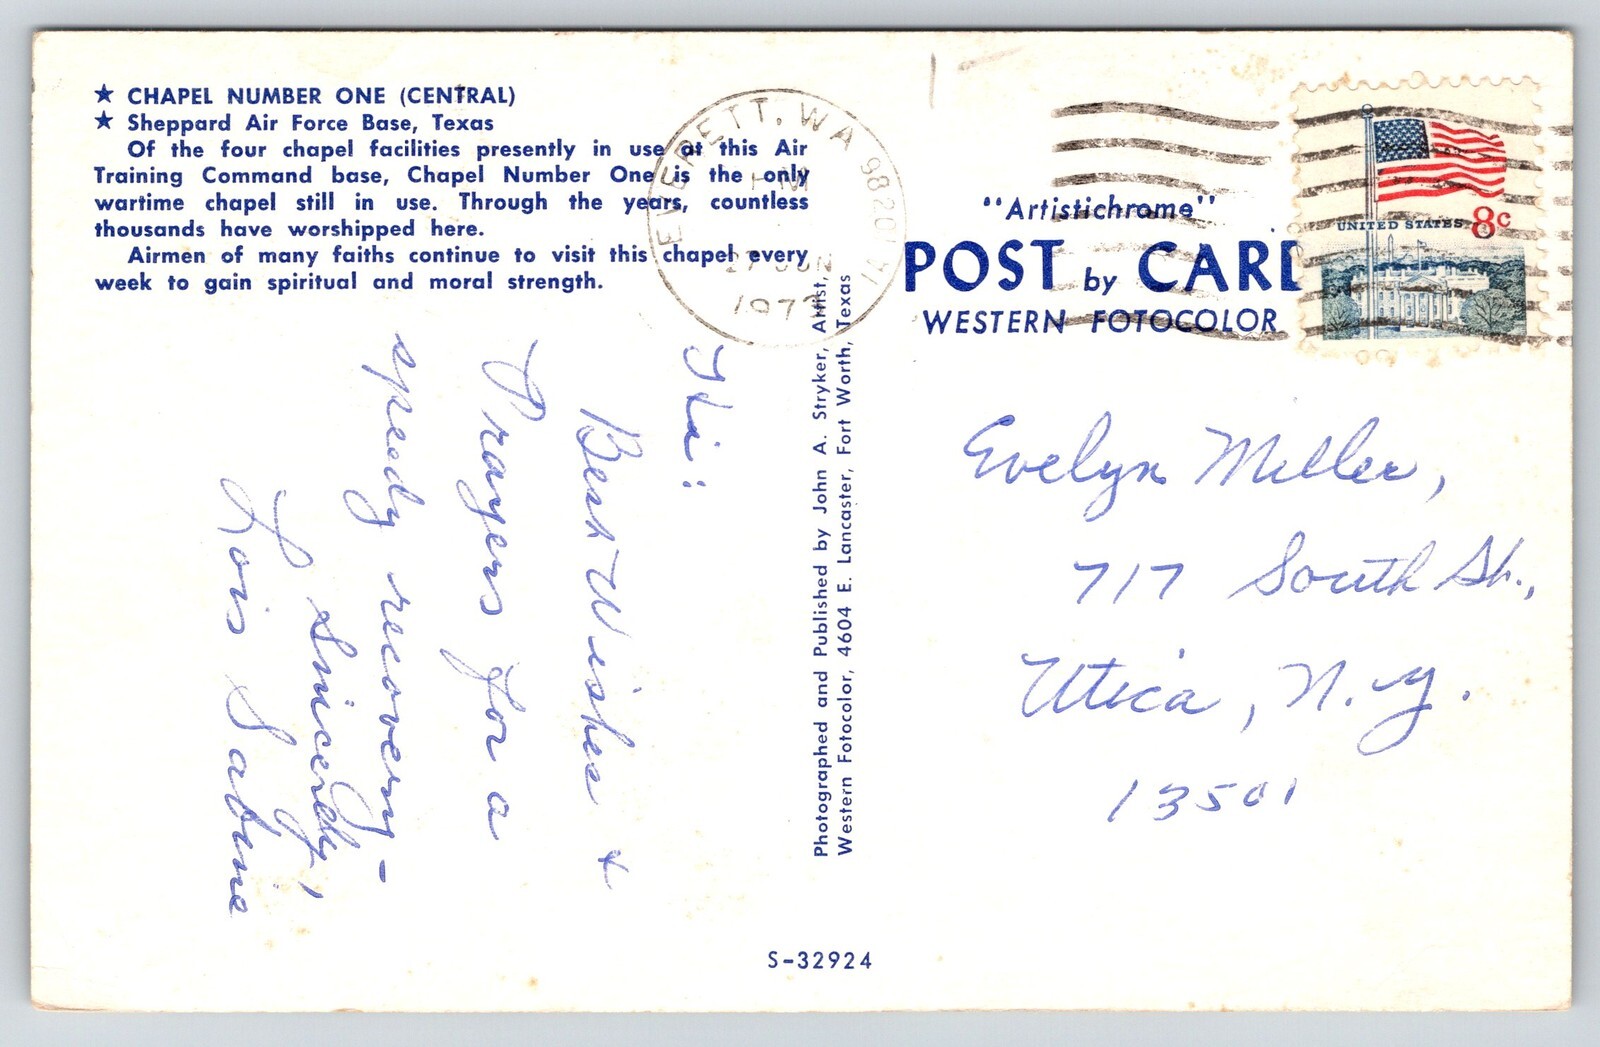 ★ CHAPEL NUMBER ONE (CENTRAL)
★ Sheppard Air Force Base, Texas
Of the four chapel facilities presently in use at this Air
Training Command base, Chapel Number One is the only
wartime chapel still in use. Through the years, countless
thousands have worshipped here.
Airmen of many faiths continue to visit this chapel every
week to gain spiritual and moral strength.
Hi:
Best Wishes &
Prayers for a
speedy recovery-
Sincerely,
Lois Sabine
Photographed and Published by John A. Stryker, Artist,
Western Fotocolor, 4604 E. Lancaster, Fort Worth, Texas
EVERETT, WA 98201
PM
27 JUN
1973
"Artistichrome"
POST by CARD
WESTERN FOTOCOLOR
UNITED STATES 8c
Evelyn Miller,
717 South St.,
Utica, N.Y.
13501
S-32924